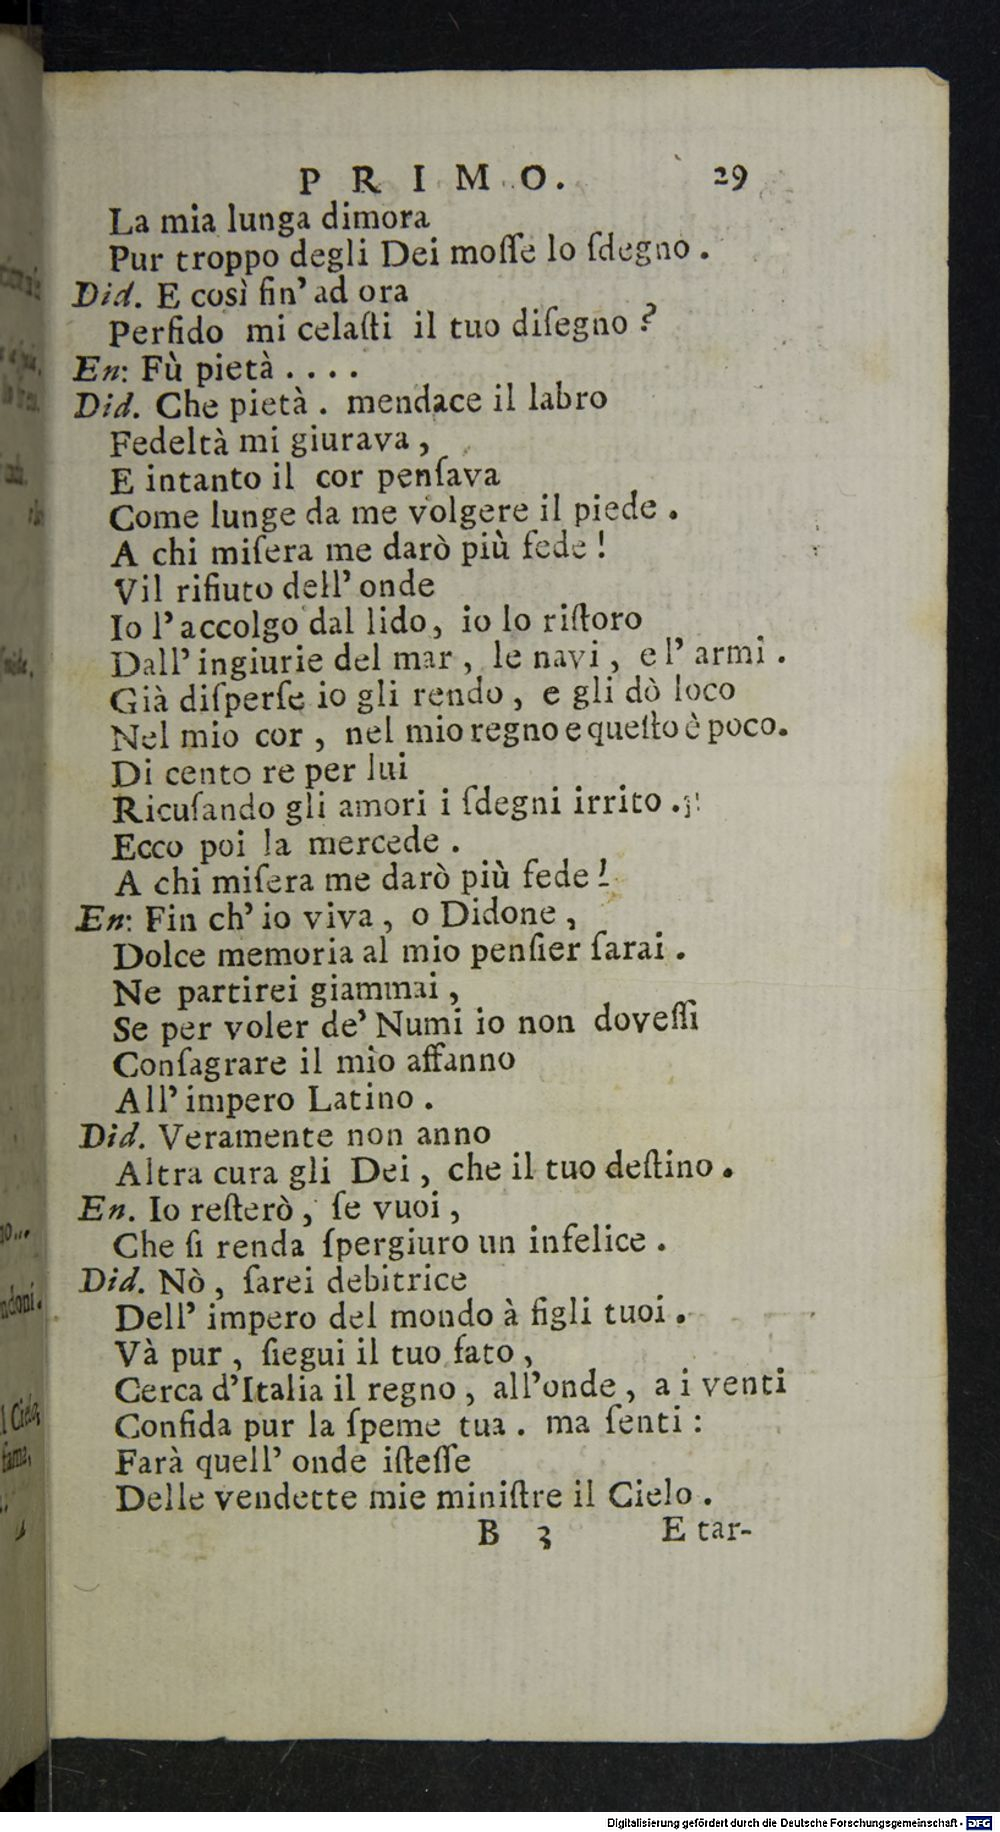 PRIMO. 29
La mia lunga dimora
Pur troppo degli Dei moſſe lo ſdegno.
Did. E così fin' ad ora
Perfido mi celaſti il tuo diſegno?
En: Fù pietà....
Did. Che pietà. mendace il labro
Fedeltà mi giurava,
E intanto il cor penſava
Come lunge da me volgere il piede.
A chi miſera me darò più fede!
Vil rifiuto dell' onde
Io l'accolgo dal lido, io lo riſtoro
Dall' ingiurie del mar, le navi, e l' armi.
Già diſperſe io gli rendo, e gli dò loco
Nel mio cor, nel mio regno e queſto è poco.
Di cento re per lui
Ricuſando gli amori i ſdegni irrito.
Ecco poi la mercede.
A chi miſera me darò più fede!
En: Fin ch' io viva, o Didone,
Dolce memoria al mio penſier ſarai.
Ne partirei giammai,
Se per voler de' Numi io non doveſſi
Conſagrare il mio affanno
All' impero Latino.
Did. Veramente non anno
Altra cura gli Dei, che il tuo deſtino.
En. Io reſterò, ſe vuoi,
Che ſi renda ſpergiuro un infelice.
Did. Nò, ſarei debitrice
Dell' impero del mondo à figli tuoi.
Và pur, ſiegui il tuo fato,
Cerca d'Italia il regno, all'onde, a i venti
Confida pur la ſpeme tua. ma ſenti:
Farà quell' onde iſteſſe
Delle vendette mie miniſtre il Cielo.
B 3 E tar-
Digitalisierung gefördert durch die Deutsche Forschungsgemeinschaft - DFG